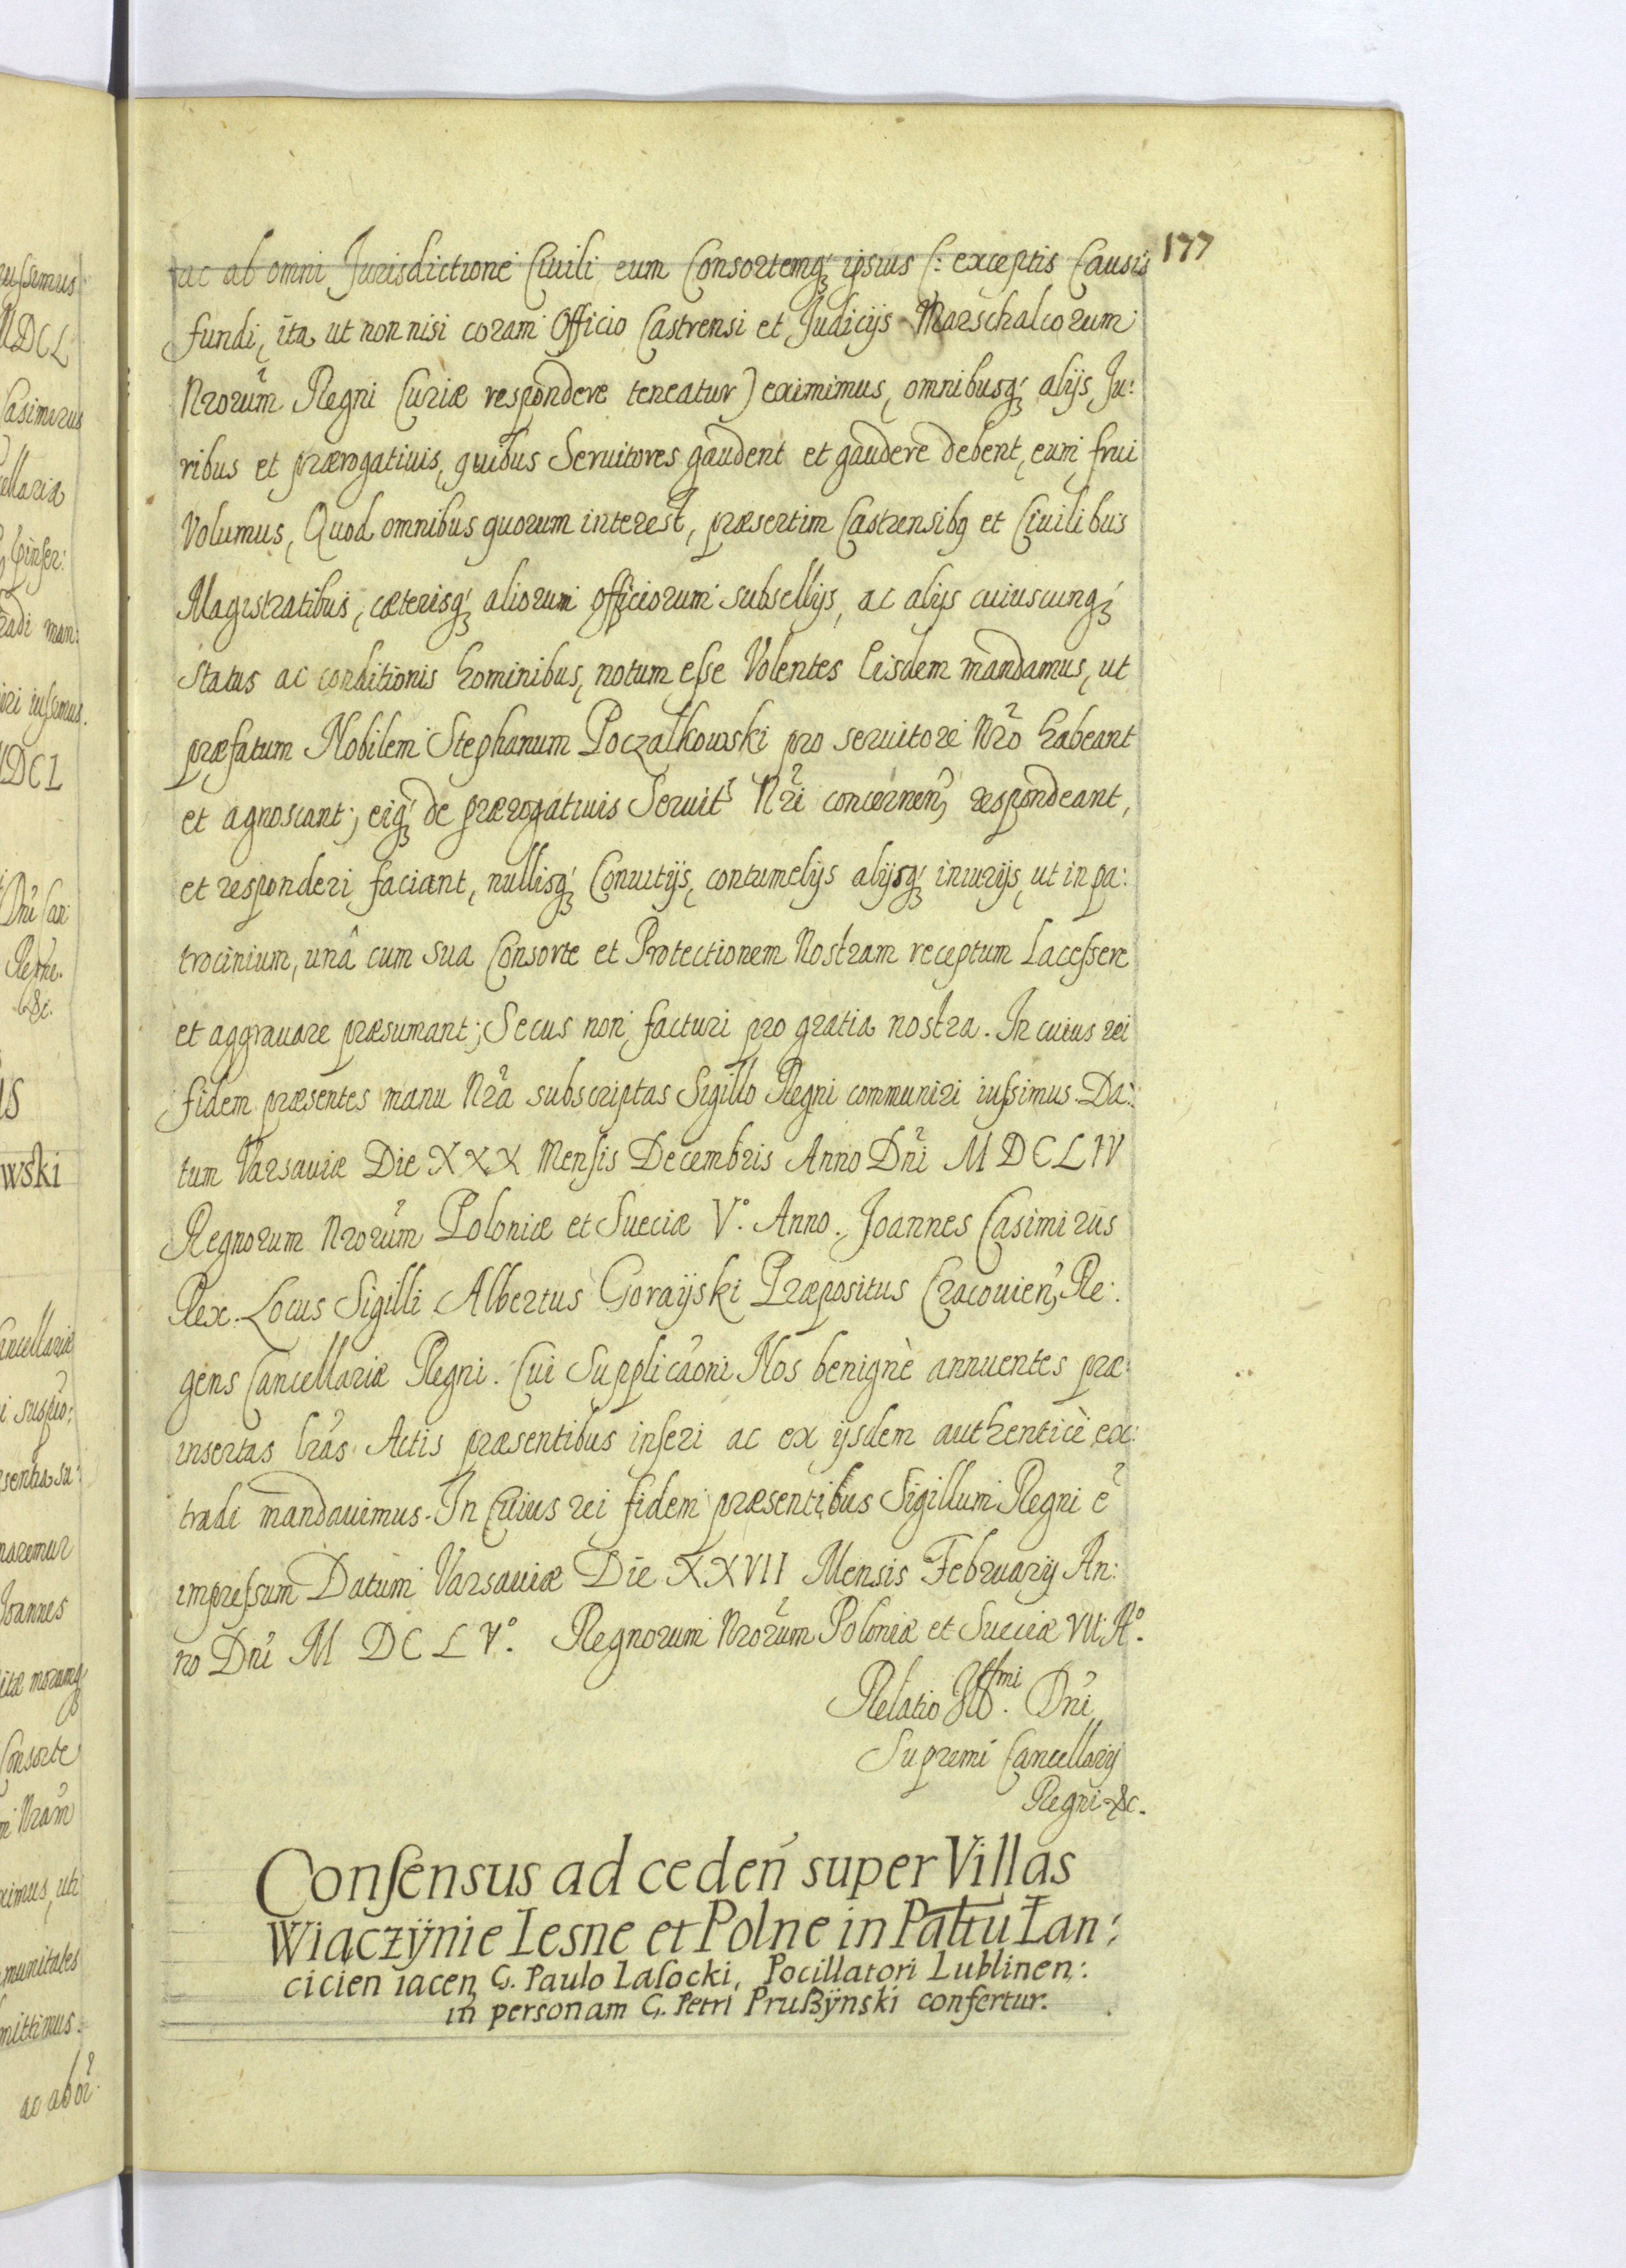 177
ac ab omni Jurisdictione Ciuili eum Consortemq́ꝫ ipsius (: exceptis Causis
fundi, ita ut non nisi coram Officio Castrensi et Judicijs Marschalcorum
Nrorum̃ Regni Curiæ respondere teneatur) eximimus, omnibusq́ꝫ alijs Ju:
ribus et prærogatiuis, quibus Seruitores gaudent et gaudere debent, eum frui
Volumus, Quod omnibus quorum interest, præsertim Castrensibq et Ciuilibus
Magistratibus, cæterisq́ꝫ aliorum officiorum subsellijs, ac alijs cuiuscunq́ꝫ
status ac conditionis hominibus, notum esse Volentes Eisdem mandamus, ut
præfatum Nobilem Stephanum Poczałkowski pro seruitore Nrõ habeant
et agnoscant; eiq́ꝫ de prærogatiuis Seruitˢ Nr̃i concernen̉ respondeant,
et responderi faciant, nullisq́ꝫ Conuitijs, contumelijs alijsq́ꝫ iniurijs, ut in pa:
trocinium, unâ cum sua Consorte et Protectionem Nostram receptum Lacessere
et aggrauare præsumant; Secus non facturi pro gratia nostra. In cuius rei
fidem præsentes manu Nrã subscriptas Sigillo Regni communiri iussimus. Da:
tum Varsauiæ Die XXX Mensis Decembris Anno Dñi MDCLIV
Regnorum Nrorum̃ Poloniæ et Sueciæ V°. Anno. Joannes Casimirus
Rex. Locus Sigilli Albertus Gorayski Præpositus Cracouien̉, Re:
gens Cancellariæ Regni. Cui Supplicãoni Nos benignè annuentes præ:
insertas lrãs Actis præsentibus inseri ac ex ijsdem authenticè ex:
tradi mandauimus. In Cuius rei fidem præsentibus Sigillum Regni ẽ
impressum Datum Varsauiæ Die XXVII Mensis February An:
no Dñi M DC L V°. Regnorum Nrorum̃ Poloniæ et Sueciæ VII A°.
Relatio Illmi. Dñi
Supremi Cancellarij
Regni &c.
Consensus ad ceden̄ super Villas
Wiączÿnie Lesne et Polne in Pal̄tu Łan:
cicien iacen G. Paulo Lasocki, Pocillatori Lublinen:
in personam G. Petri Prußÿnski confertur.